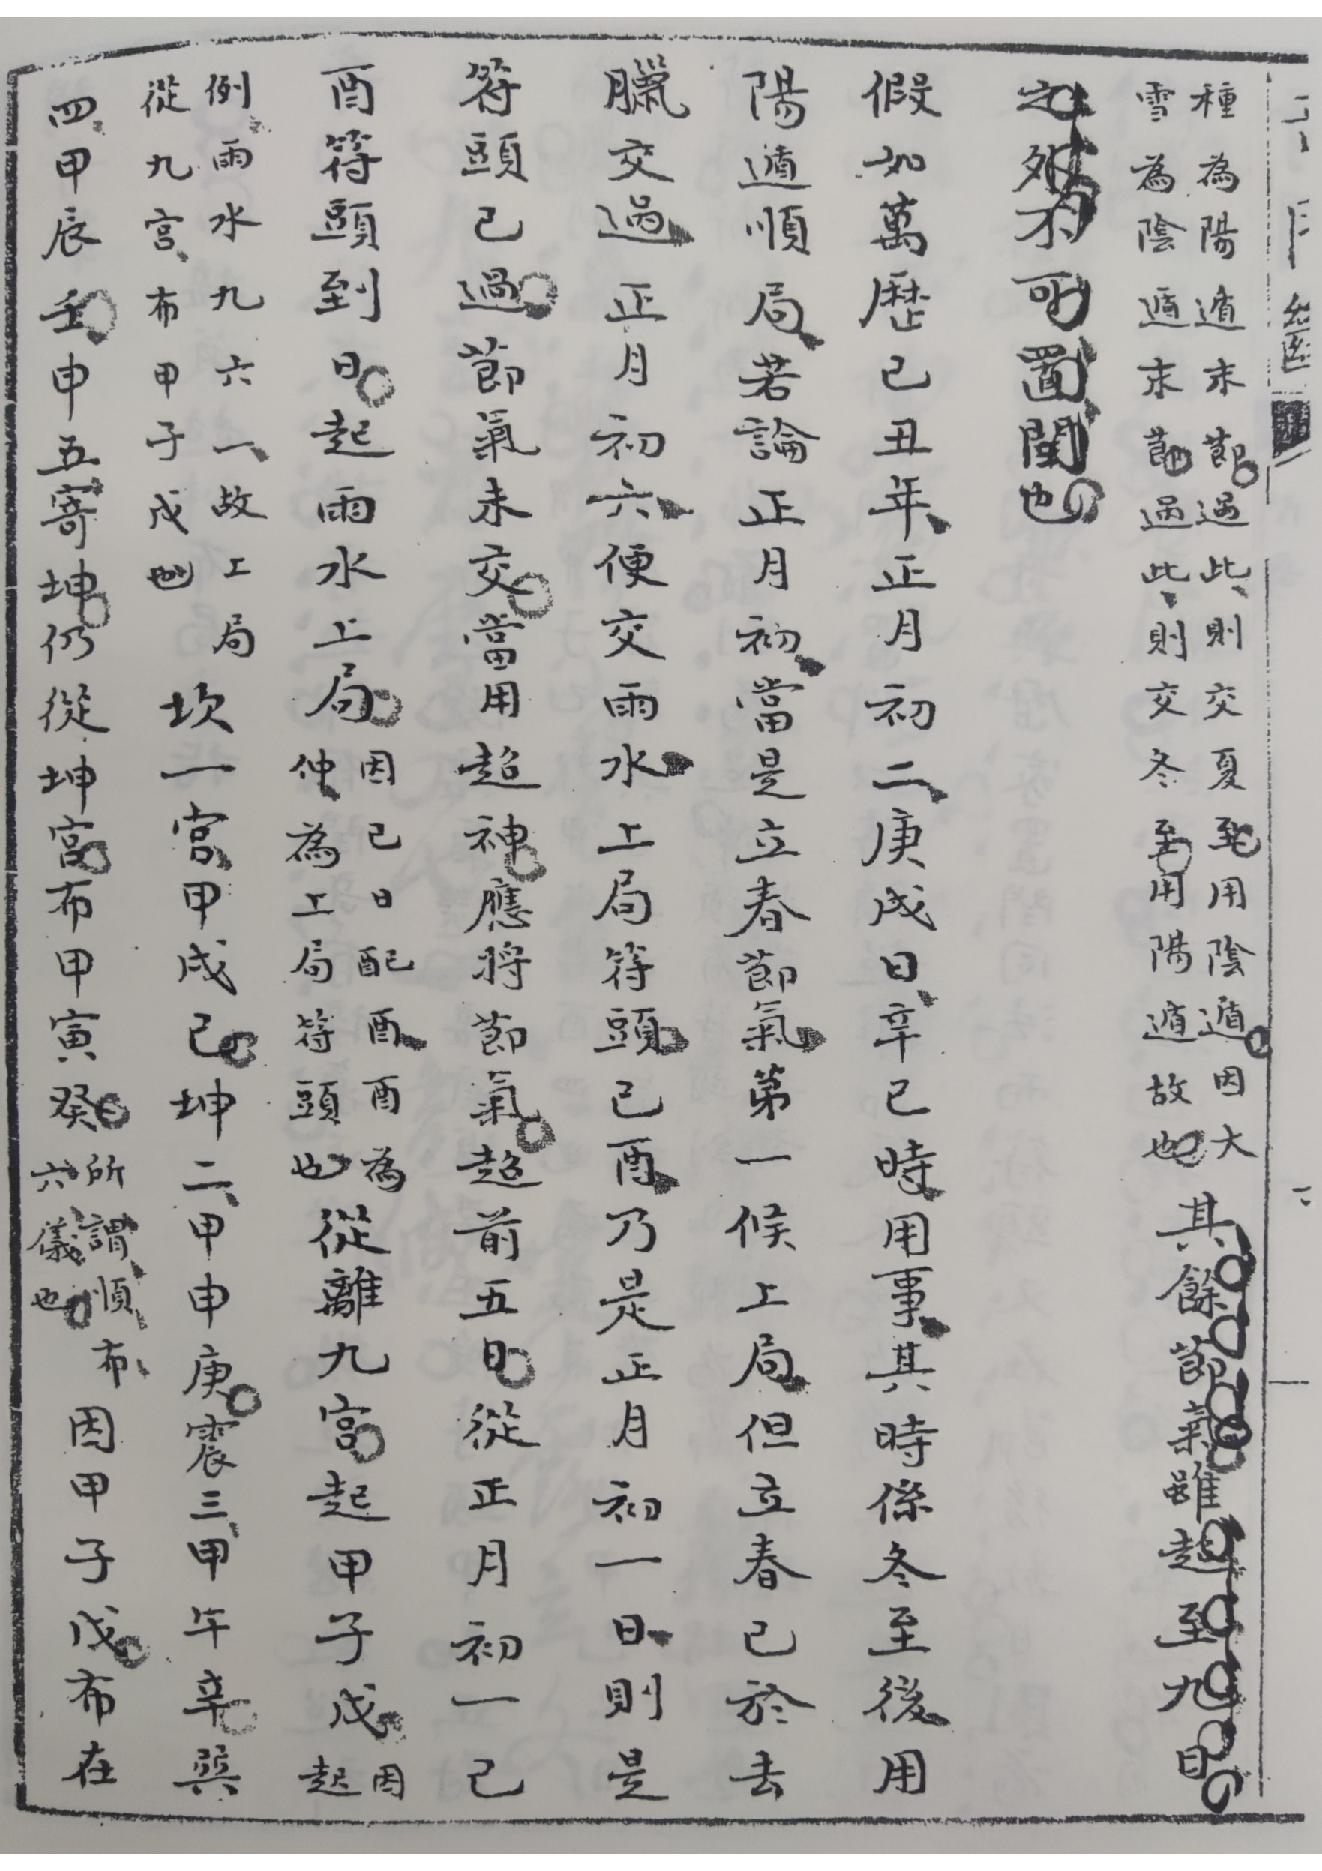 種為陽遁末節過此則交夏至用陰遁因大
雪為陰遁末節過此則交冬至用陽遁故也
其餘節氣雖超至九日
之外不可置閏也
假如萬歷己丑年正月初二庚戌日辛巳時用事其時係冬至後用
陽遁順局若論正月初當是立春節氣第一候上局但立春已於去
臘交過正月初六便交雨水上局符頭己酉乃是正月初一日則是
符頭已過節氣未交當用超神應將節氣超前五日從正月初一己
酉符頭到日起雨水上局
因己日配酉酉為
仲為上局符頭也
從離九宮起甲子戊
因
起
例雨水九六一故上局
從九宮布甲子戊也
坎一宮甲戌己坤二甲申庚震三甲午辛巽
四甲辰壬中五寄坤仍從坤宮布甲寅癸
所謂順布
六儀也
因甲子戊布在